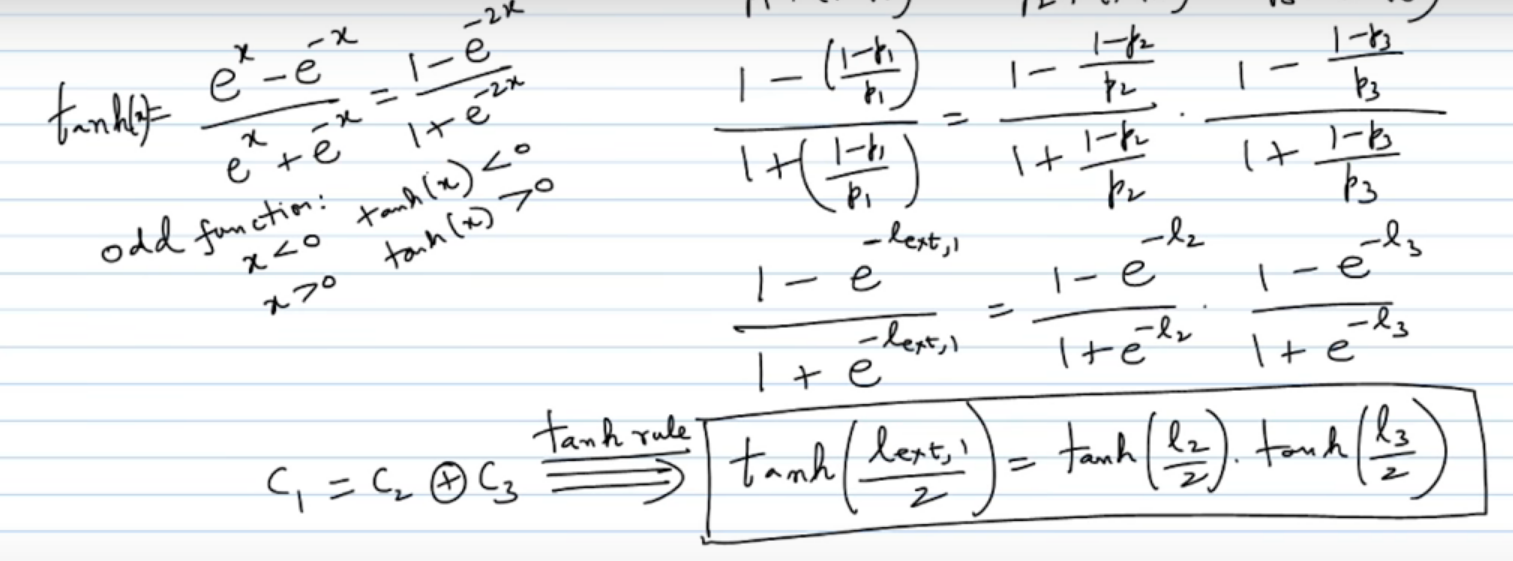 tanh(x) = (e^x - e^-x) / (e^x + e^-x) = (1 - e^-2x) / (1 + e^-2x)
odd function:
x < 0 tanh(x) < 0
x > 0 tanh(x) > 0
(1 - ((1-p₁)/p₁)) / (1 + ((1-p₁)/p₁)) = (1 - (1-p₂)/p₂) / (1 + (1-p₂)/p₂) · (1 - (1-p₃)/p₃) / (1 + (1-p₃)/p₃)
(1 - e^-l_ext,1) / (1 + e^-l_ext,1) = (1 - e^-l₂) / (1 + e^-l₂) · (1 - e^-l₃) / (1 + e^-l₃)
C₁ = C₂ ⊕ C₃ tanh rule ⟹ tanh(l_ext,1 / 2) = tanh(l₂/2) · tanh(l₃/2)